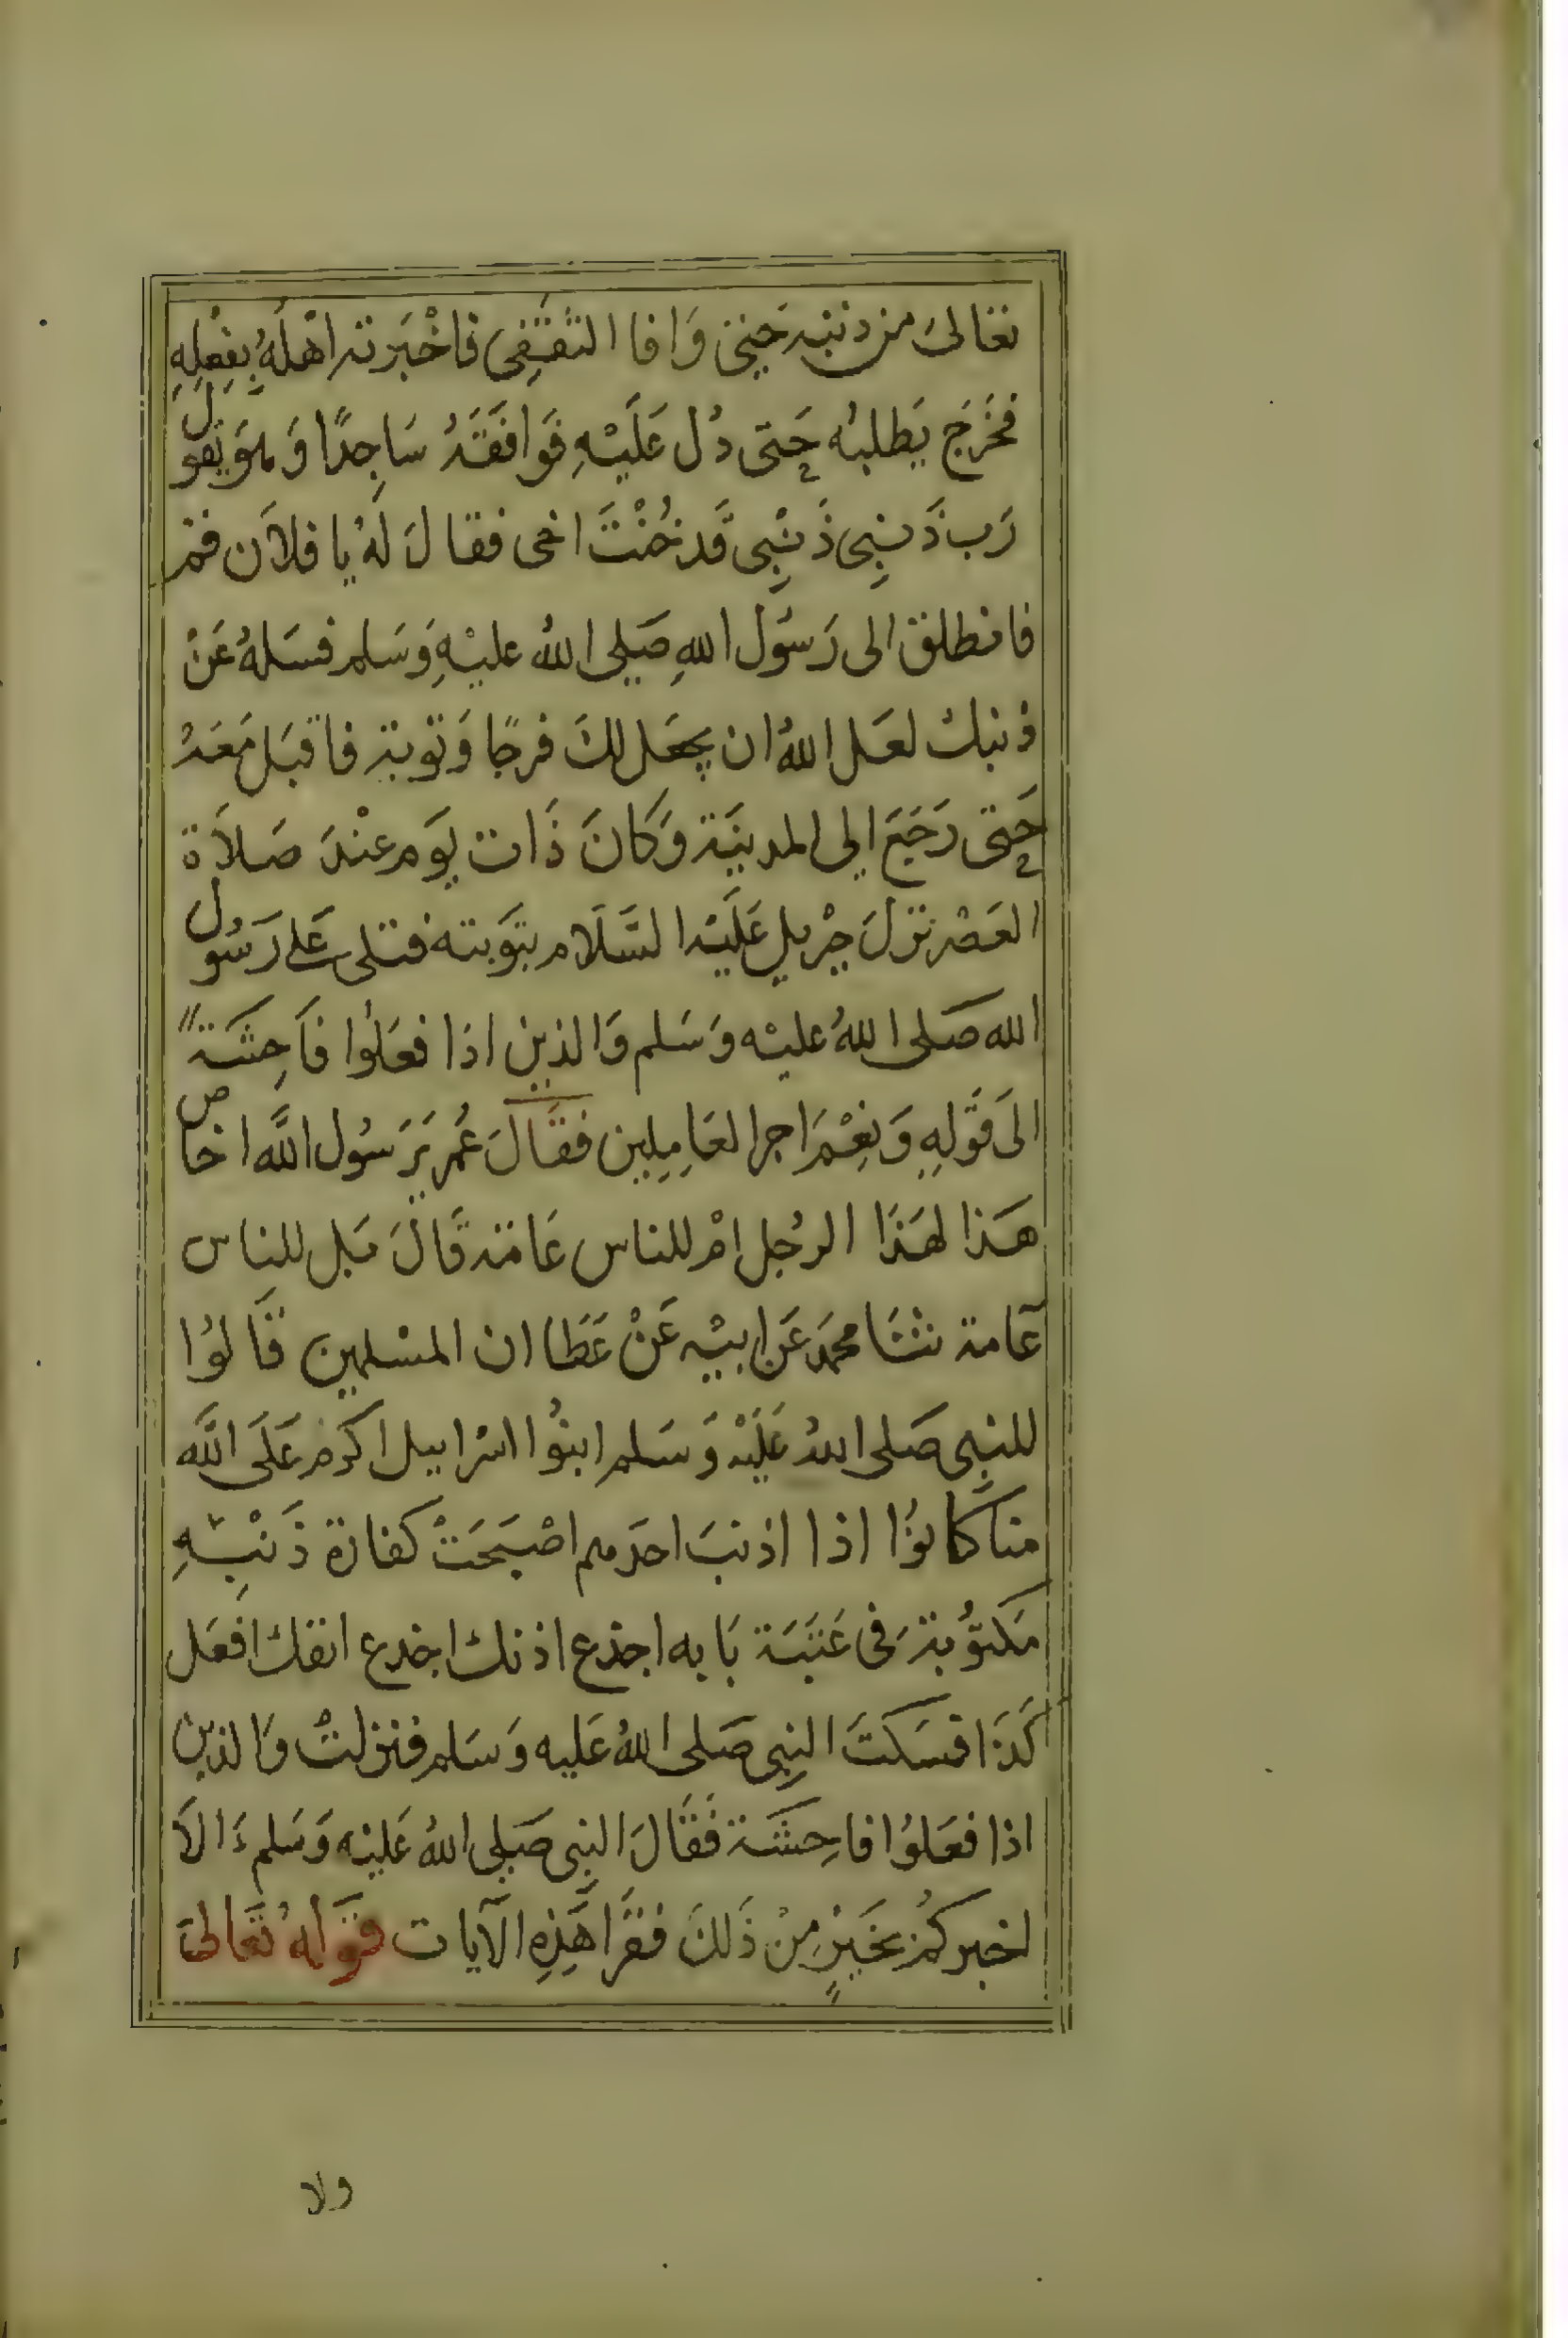 تعَالىَ من ذنبه حَيتى وَافا الثقَفِى فاخْبَرته اهْلَهُ بِفِعْلِهِ
فخَرَج يَطلبُه حَتى دُل عَلَيْهِ فَوافَقَهُ سَاجِدًا وَهوَ يَقول
رَب ذَنبِى ذَنْبِى قَد خُنْتَ اخى فقالَ لهُ يا فلاَن قم
فانطلق الى رَسُول اللهِ صَلى اللهُ عليْهِ وَسَلم فسَلهُ عَنْ
ذنبك لعَل اللهُ ان يجعَل لكَ فرجًا وَتوبة فاقبَل مَعَهُ
حَتى رَجَعَ الى المدينَة وَكانَ ذَات يَوم عنْدَ صَلاَة
العَصْر نزلَ جبْريل عَلَيْه السَّلَام بتَوبته فتلى عَلى رَسُول
الله صَلى اللهُ عليْه وَسَلم وَالذين اذا فعَلوُا فاَحِشَة
الىَ قَولِهِ وَنِعْمَ اجر العَامِلِين فقَالَ عُمر يَرَسُول اللَّه اخاص
هَذا لهَذَا الرجُل امْ للناس عَامّة قَالَ بَل للناس
عَامة نثنَا محمَد عَن ابيْه عَنْ عَطَا ان المسْلمين قَالوُا
للنبِى صَلى اللهُ عَلَيْه وَسَلم ابنوُا اسْرابيل اكرَم عَلَى اللَّه
منا كانوُا اذا اذنبَ احَدهم اصْبَحَتْ كفارة ذَنْبِهِ
مَكتُوبة فى عَتَبَة بَابه اجذع اذنك اجدع انفك افعَل
كَذَا فسَكتَ النبِى صَلى اللهُ عَليه وَسَلم فنزلتْ وَالذين
اذا فعَلوُا فاحِشَة فَقَالَ النبِى صَلى اللهُ عَليْه وَسَلم ءَالاَ
اخبركُمْ بخَيْرٍ مِنْ ذَلكَ فقَرَا هَذِهِ الآيات قوَلهُ تَعَالىَ
ولا